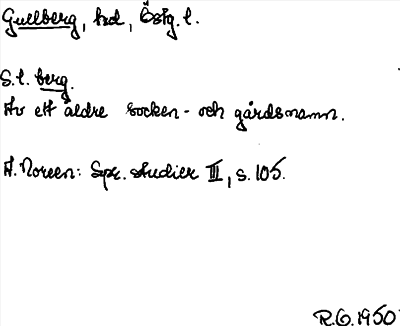 Gullberg, hd, Östg. l.
S.l. berg.
Av ett äldre socken- och gårdsnamn.
A. Noreen: Spr. studier III, s. 105.
R.G. 1950